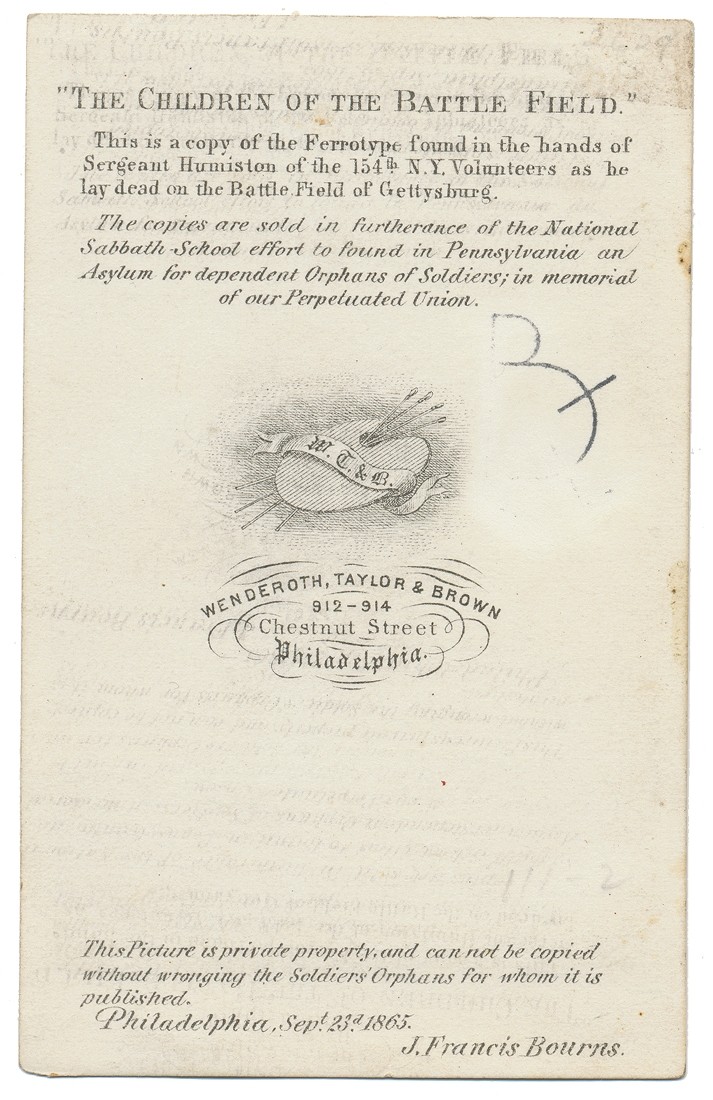 "THE CHILDREN OF THE BATTLE FIELD."
This is a copy of the Ferrotype found in the hands of
Sergeant Humiston of the 154th N.Y. Volunteers as he
lay dead on the Battle Field of Gettysburg.
The copies are sold in furtherance of the National
Sabbath-School effort to found in Pennsylvania an
Asylum for dependent Orphans of Soldiers; in memorial
of our Perpetuated Union.
W. T. & B.
WENDEROTH, TAYLOR & BROWN
912-914
Chestnut Street
Philadelphia.
This Picture is private property, and can not be copied
without wronging the Soldiers' Orphans for whom it is
published.
Philadelphia, Sept. 23d 1865.
J. Francis Bourns.